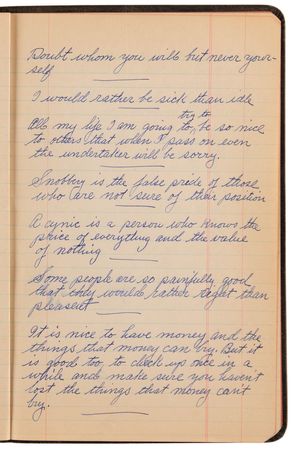 Doubt whom you will but never your-
self
I would rather be sick than idle
try to
All my life I am going to, be so nice
to others that when I pass on even
the undertaker will be sorry.
Snobbery is the false pride of those
who are not sure of their position
A cynic is a person who knows the
price of everything and the value
of nothing
Some people are so painfully good
that they would rather be right than
pleasent
It is nice to have money and the
things that money can buy. But it
is good too, to check up once in a
while and make sure you haven't
lost the things that money can't
buy.